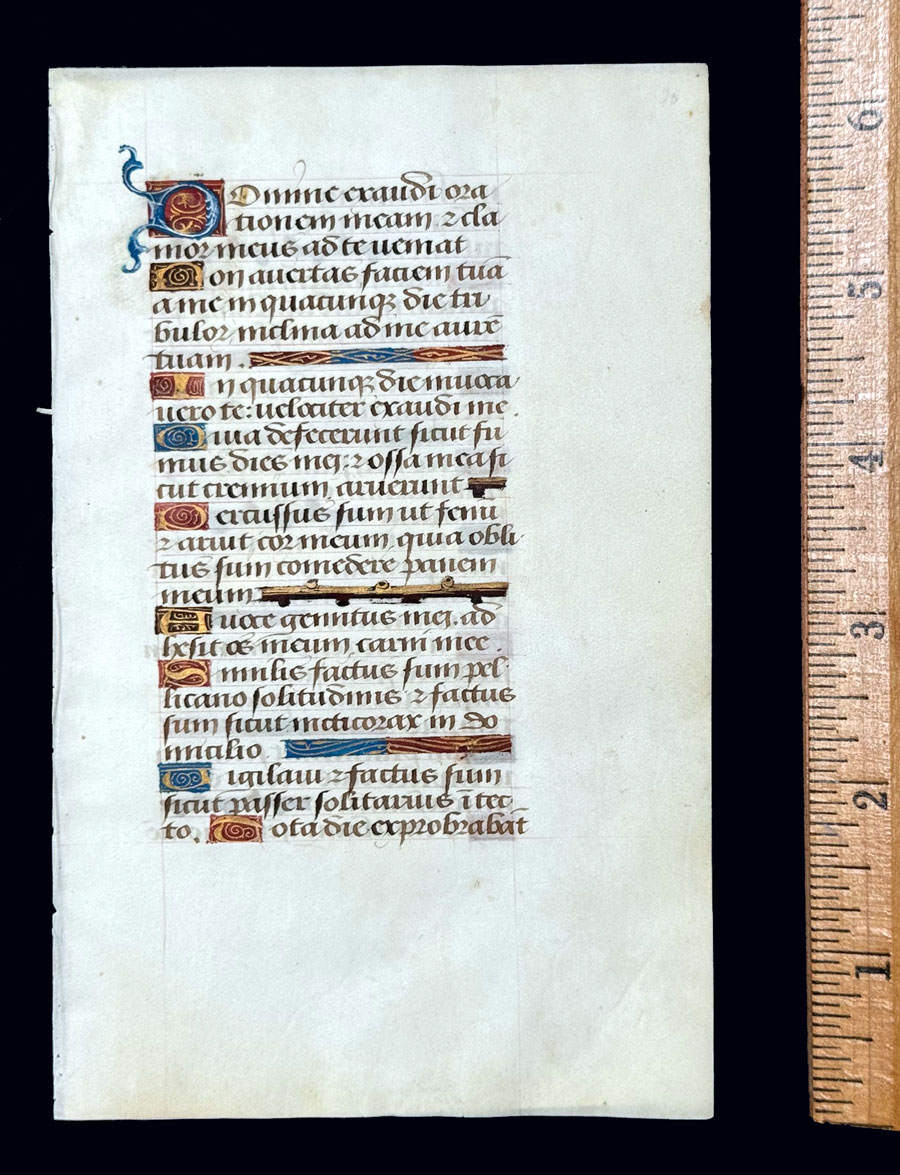 Domine exaudi ora
tionem meam, ⁊ cla
mor meus ad te ueniat
Non auertas faciem tuā
a me in quacunqꝫ die tri
bulor, inclina ad me aurē
tuam.
In quacunqꝫ die inuoca
uero te: uelociter exaudi me.
Quia defecerunt sicut fu
mus dies mei: ⁊ ossa mea si
cut cremium aruerunt
Percussus sum ut fenū
⁊ aruit cor meum, quia obli
tus sum comedere panem
meum
A uoce gemitus mei. ad
hesit os meum carni mee.
Similis factus sum pel
licano solitudinis ⁊ factus
sum sicut nicticorax in do
micilio
Vigilaui ⁊ factus sum
sicut passer solitarius ī tec
to. Tota die exprobrabāt
6
5
4
3
2
1